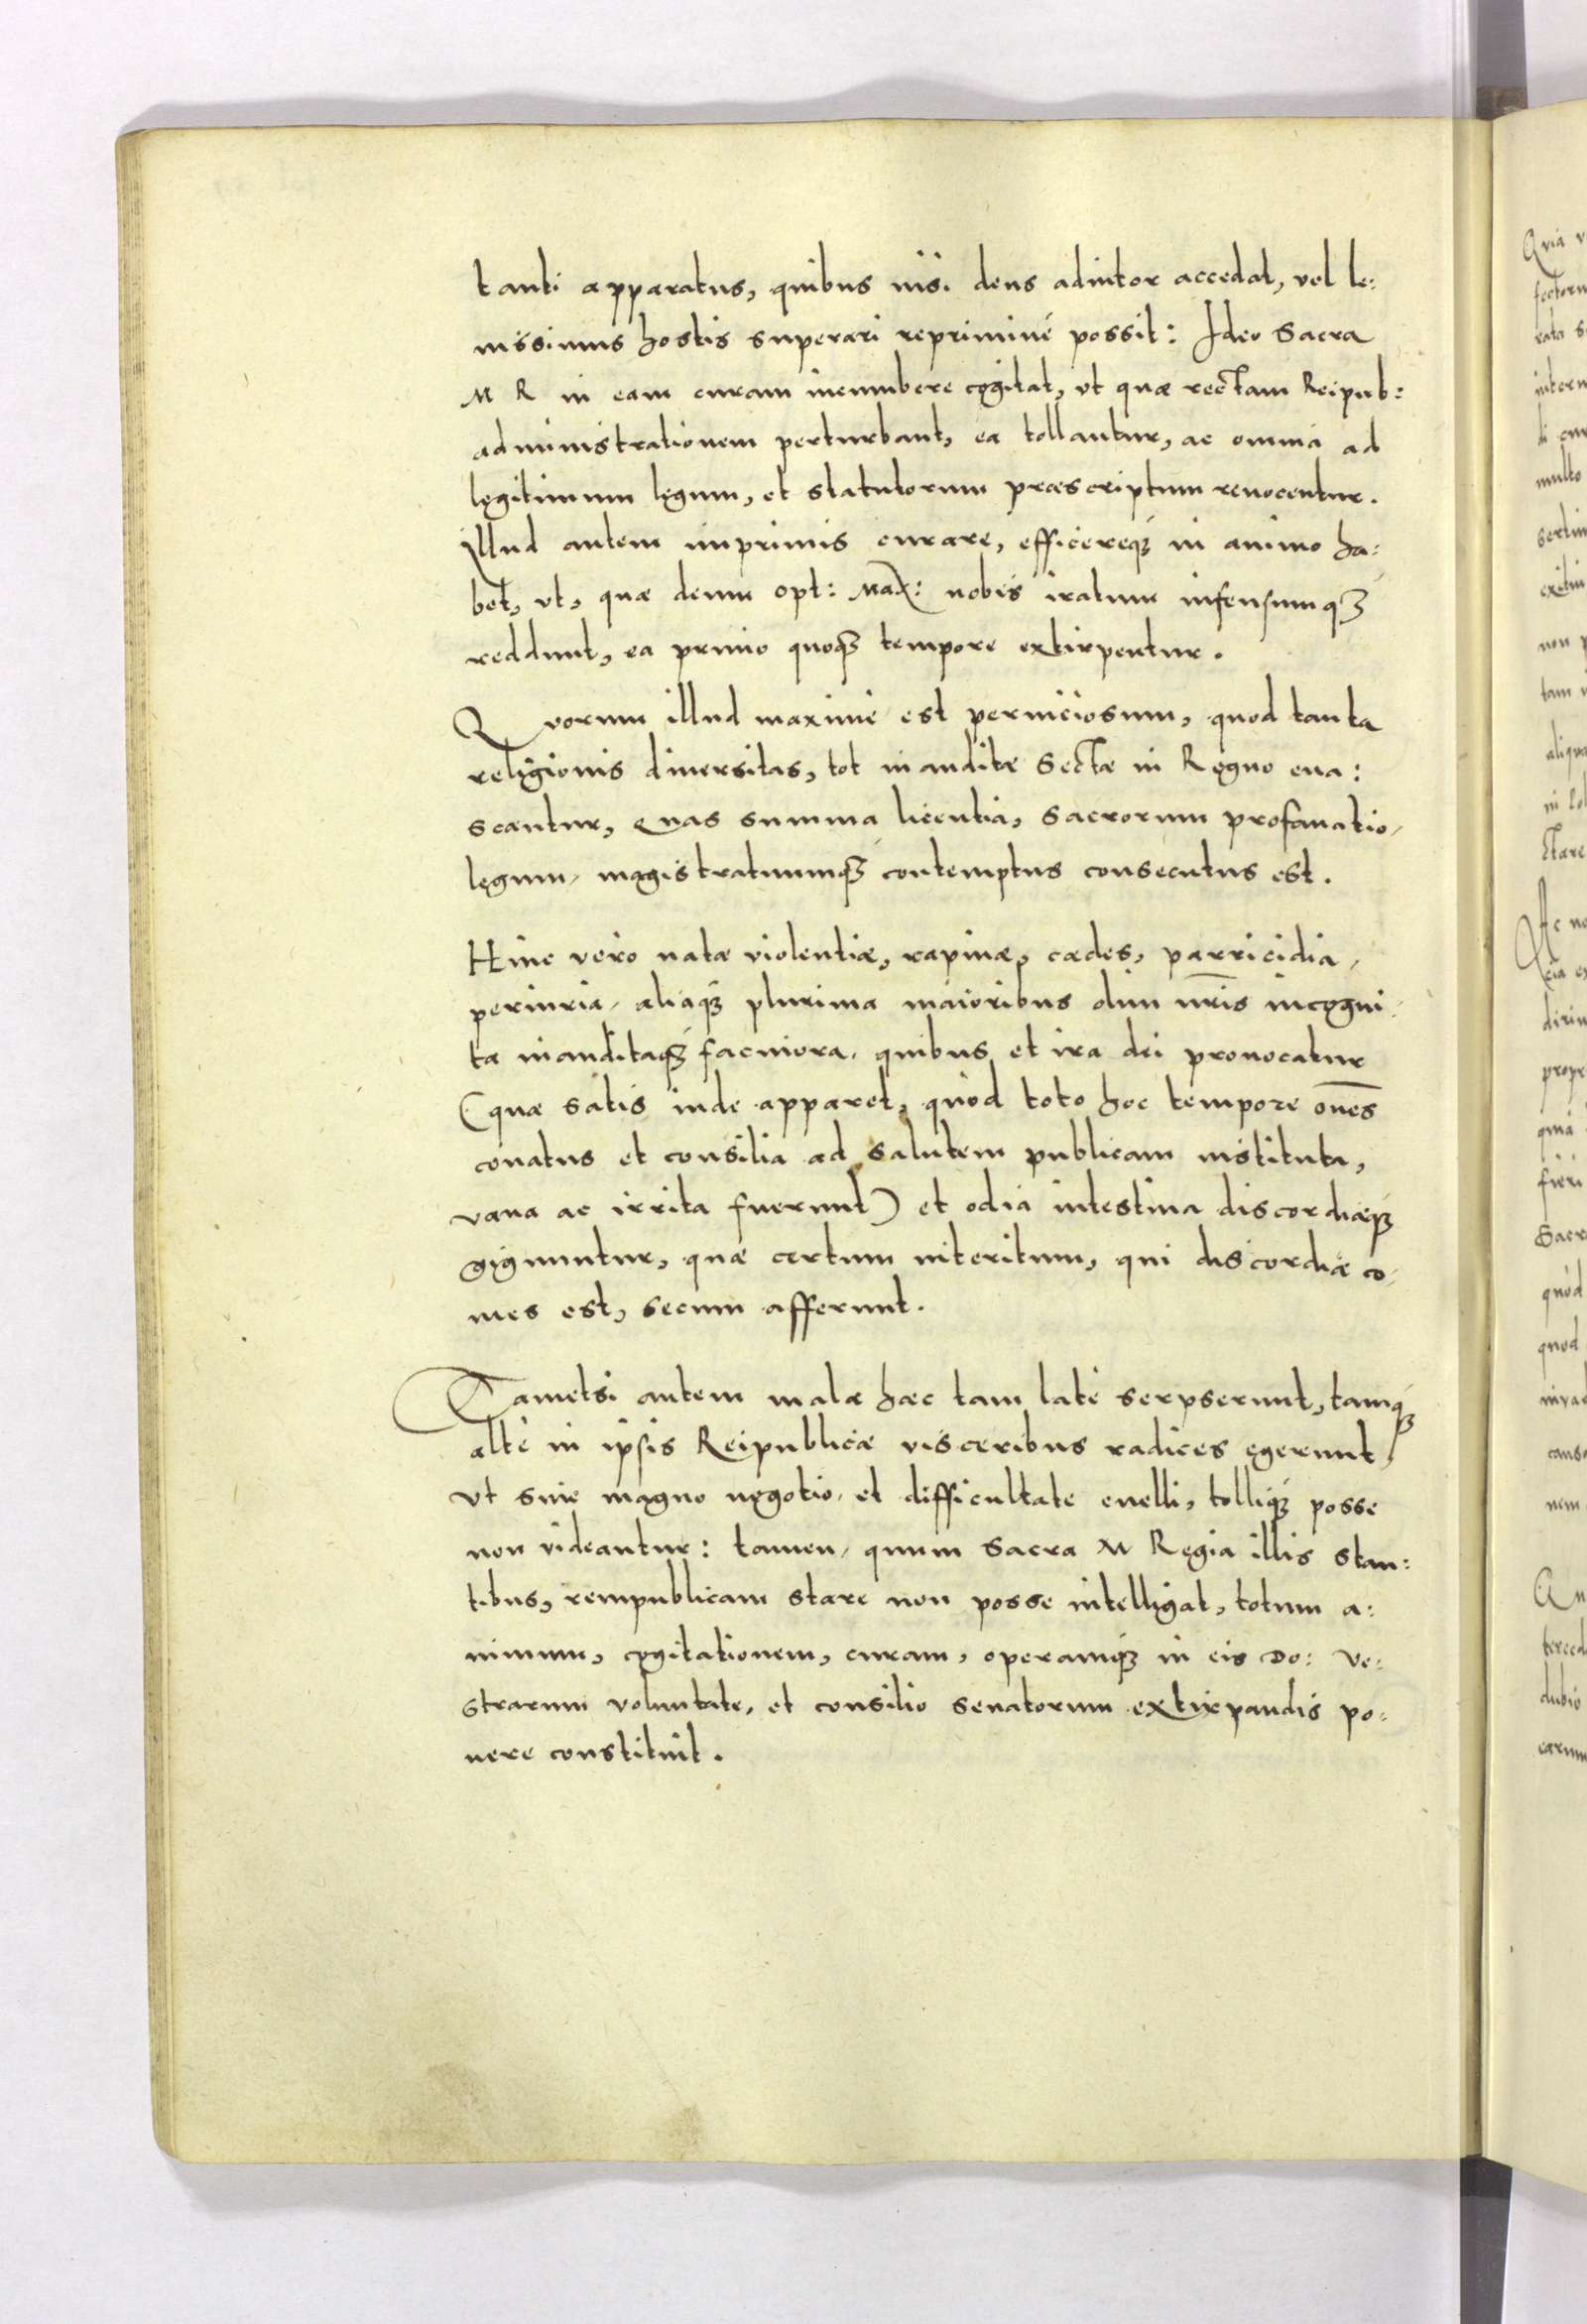 tanti apparatus, quibus nisi deus adiutor accedat, vel le:
uissimus hostis superari reprimiué possit: Ideo Sacra
M R in eam curam incumbere cogitat, ut quæ rectam Reipub:
administrationem perturbant, ea tollantur, ac omnia ad
legitimum legum, et statutorum præscriptum reuocentur.
Illud autem imprimis curare, efficereq; in animo ha:
bet, ut, quæ deum opt: Max: nobis iratum infensumq;
reddunt, ea primo quoq; tempore extirpentur.
Quorum illud maximè est perniciosum, quod tanta
religionis diuersitas, tot inauditæ Sectæ in Regno ena:
scantur, quas summa licentia, Sacrorum profanatio,
legum, magistratuumq; contemptus consecutus est.
Hinc vero natæ violentiæ, rapinæ, cædes, parricidia,
periuria, aliaq; plurima maioribus olim nr̄is incogni,
ta inauditaq; facinora, quibus et ira dei prouocatur
(quæ satis inde apparet, quòd toto hoc tempore om̄es
conatus et consilia ad salutem publicam instituta,
vana ac irrita fuerunt) et odia intestina discordiæq;
gignuntur, quæ certum interitum, qui discordiæ co,
mes est, secum afferunt.
Tametsi autem mala hæc tam latè serpserunt, tamq;
altè in ipsis Reipublicæ visceribus radices egerunt,
ut sine magno negotio, et difficultate euelli, tolliq; posse
non videantur: tamen, quum Sacra M Regia illis stan:
tibus, rempublicam stare non posse intelligat, totum a:
nimum, cogitationem, curam, operamq; in eis Do: Ve:
strarum voluntate, et consilio senatorum extirpandis po:
nere constituit.